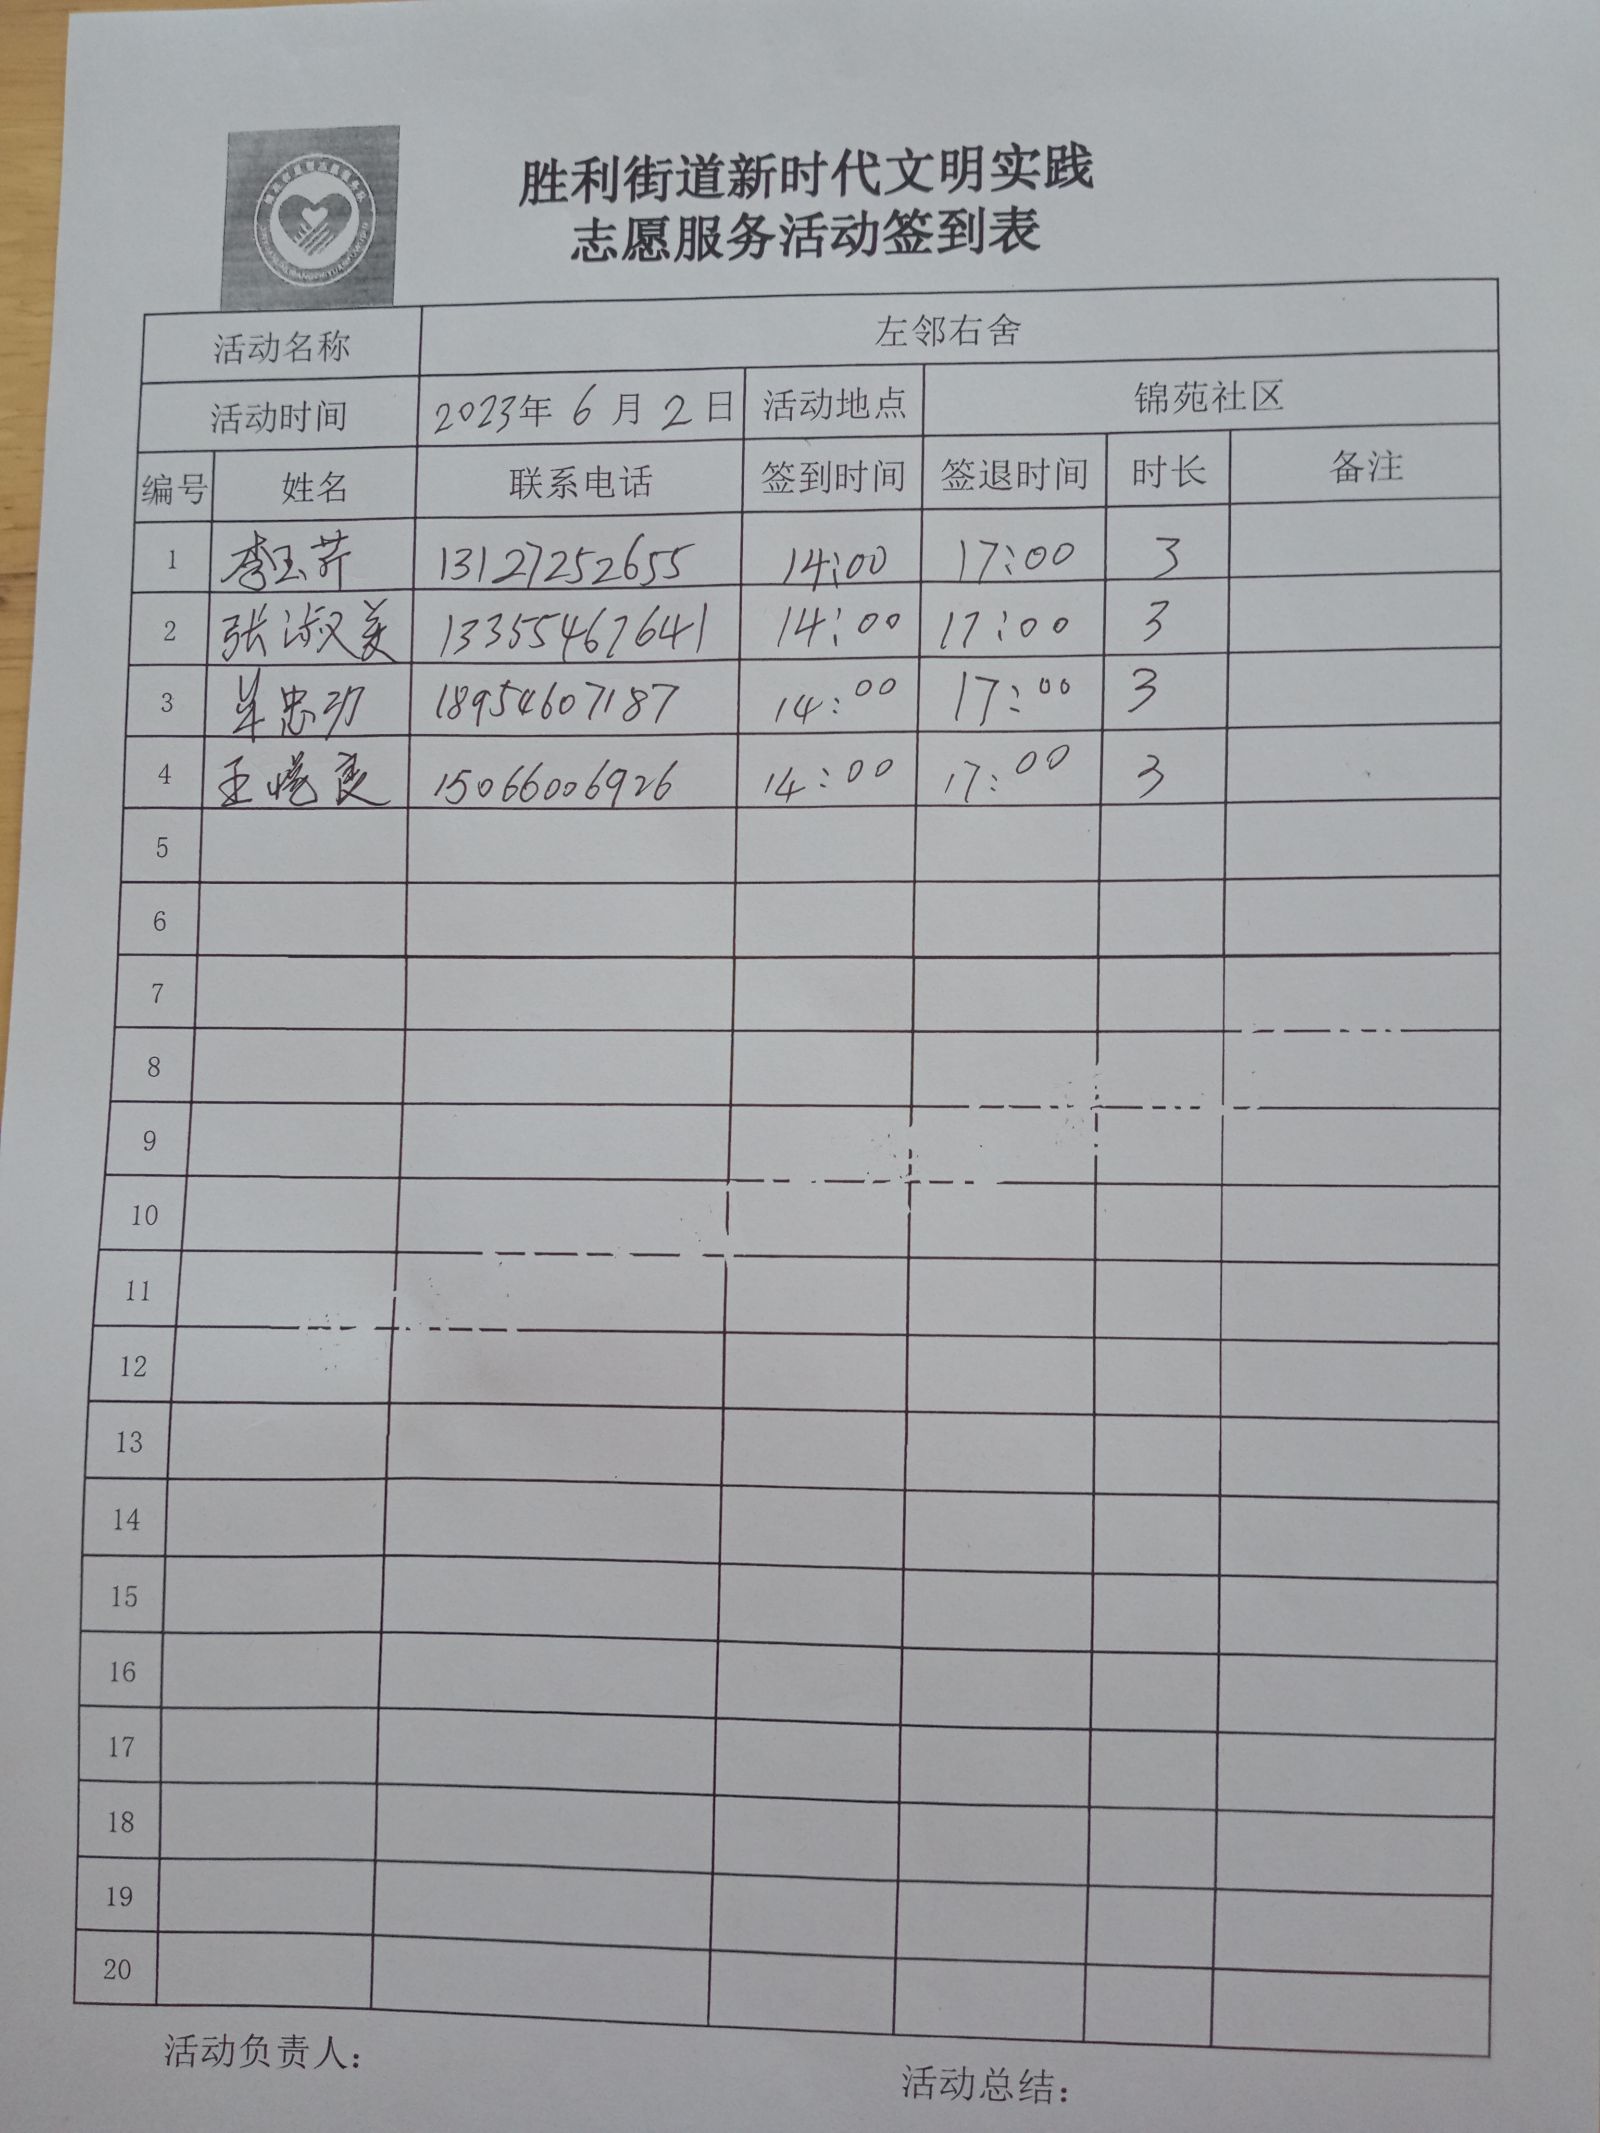 胜利街道新时代文明实践
志愿服务活动签到表
活动名称 左邻右舍
活动时间 2023年 6 月 2 日 活动地点 锦苑社区
编号 姓名 联系电话 签到时间 签退时间 时长 备注
1 李玉芹 13127252655 14:00 17:00 3
2 张淑美 13355467641 14:00 17:00 3
3 单忠功 18954607187 14:00 17:00 3
4 王 15066006926 14:00 17:00 3
5
6
7
8
9
10
11
12
13
14
15
16
17
18
19
20
活动负责人：
活动总结：